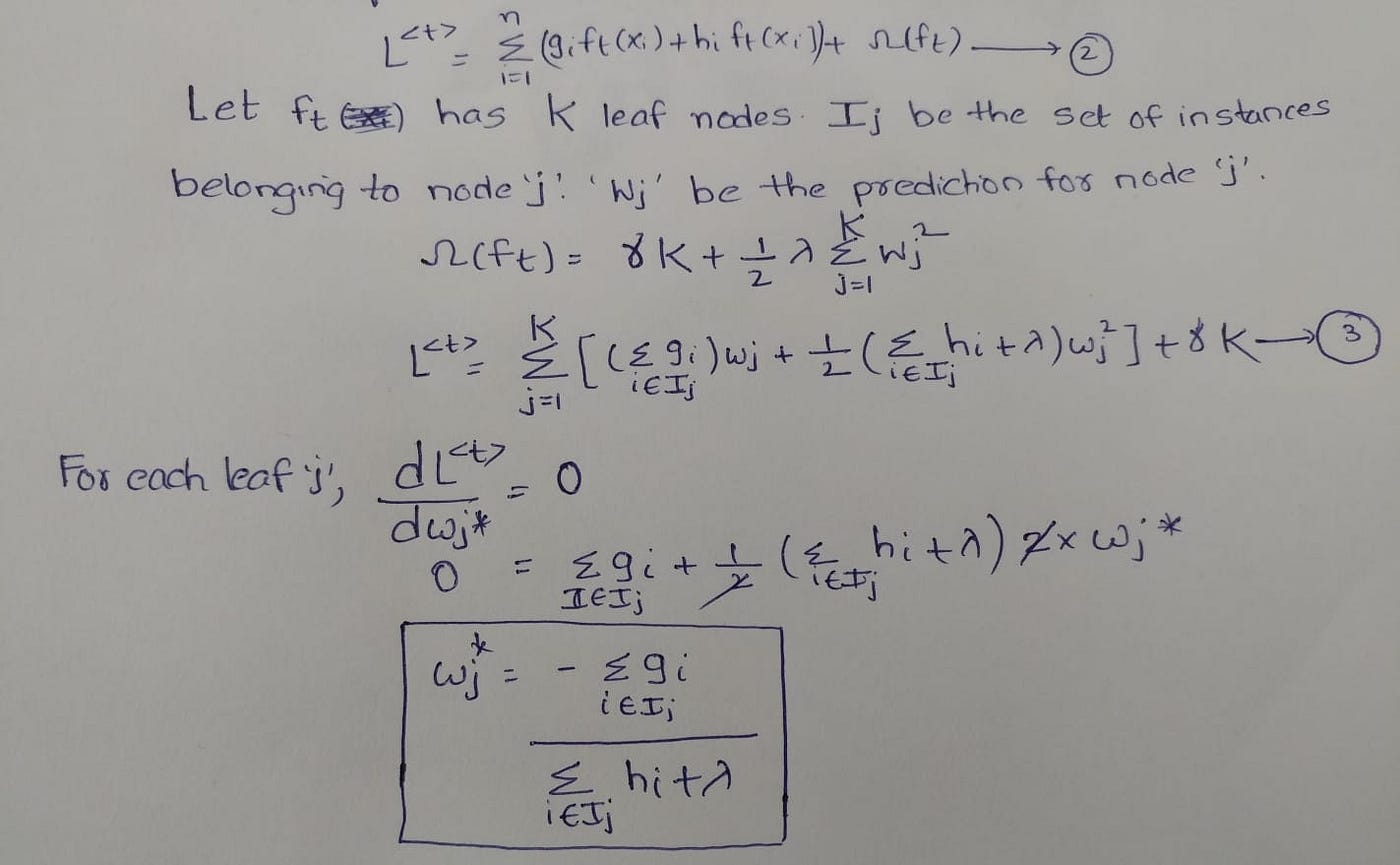 L<t> = Σ_{i=1}^{n} (gift(xi) + hi ft(xi)) + Ω(ft) ⟶ ②
Let ft has K leaf nodes. Ij be the set of instances
belonging to node 'j'. 'Wj' be the prediction for node 'j'.
Ω(ft) = γK + 1/2 λ Σ_{j=1}^{K} Wj²
L<t> = Σ_{j=1}^{K} [(Σ_{i∈Ij} gi)wj + 1/2 (Σ_{i∈Ij} hi + λ)wj²] + γK ⟶ ③
For each leaf 'j', dL<t>/dwj* = 0
0 = Σ_{I∈Ij} gi + 1/2 (Σ_{i∈Ij} hi + λ) 2 × wj*
wj* = - Σ_{i∈Ij} gi / Σ_{i∈Ij} hi + λ